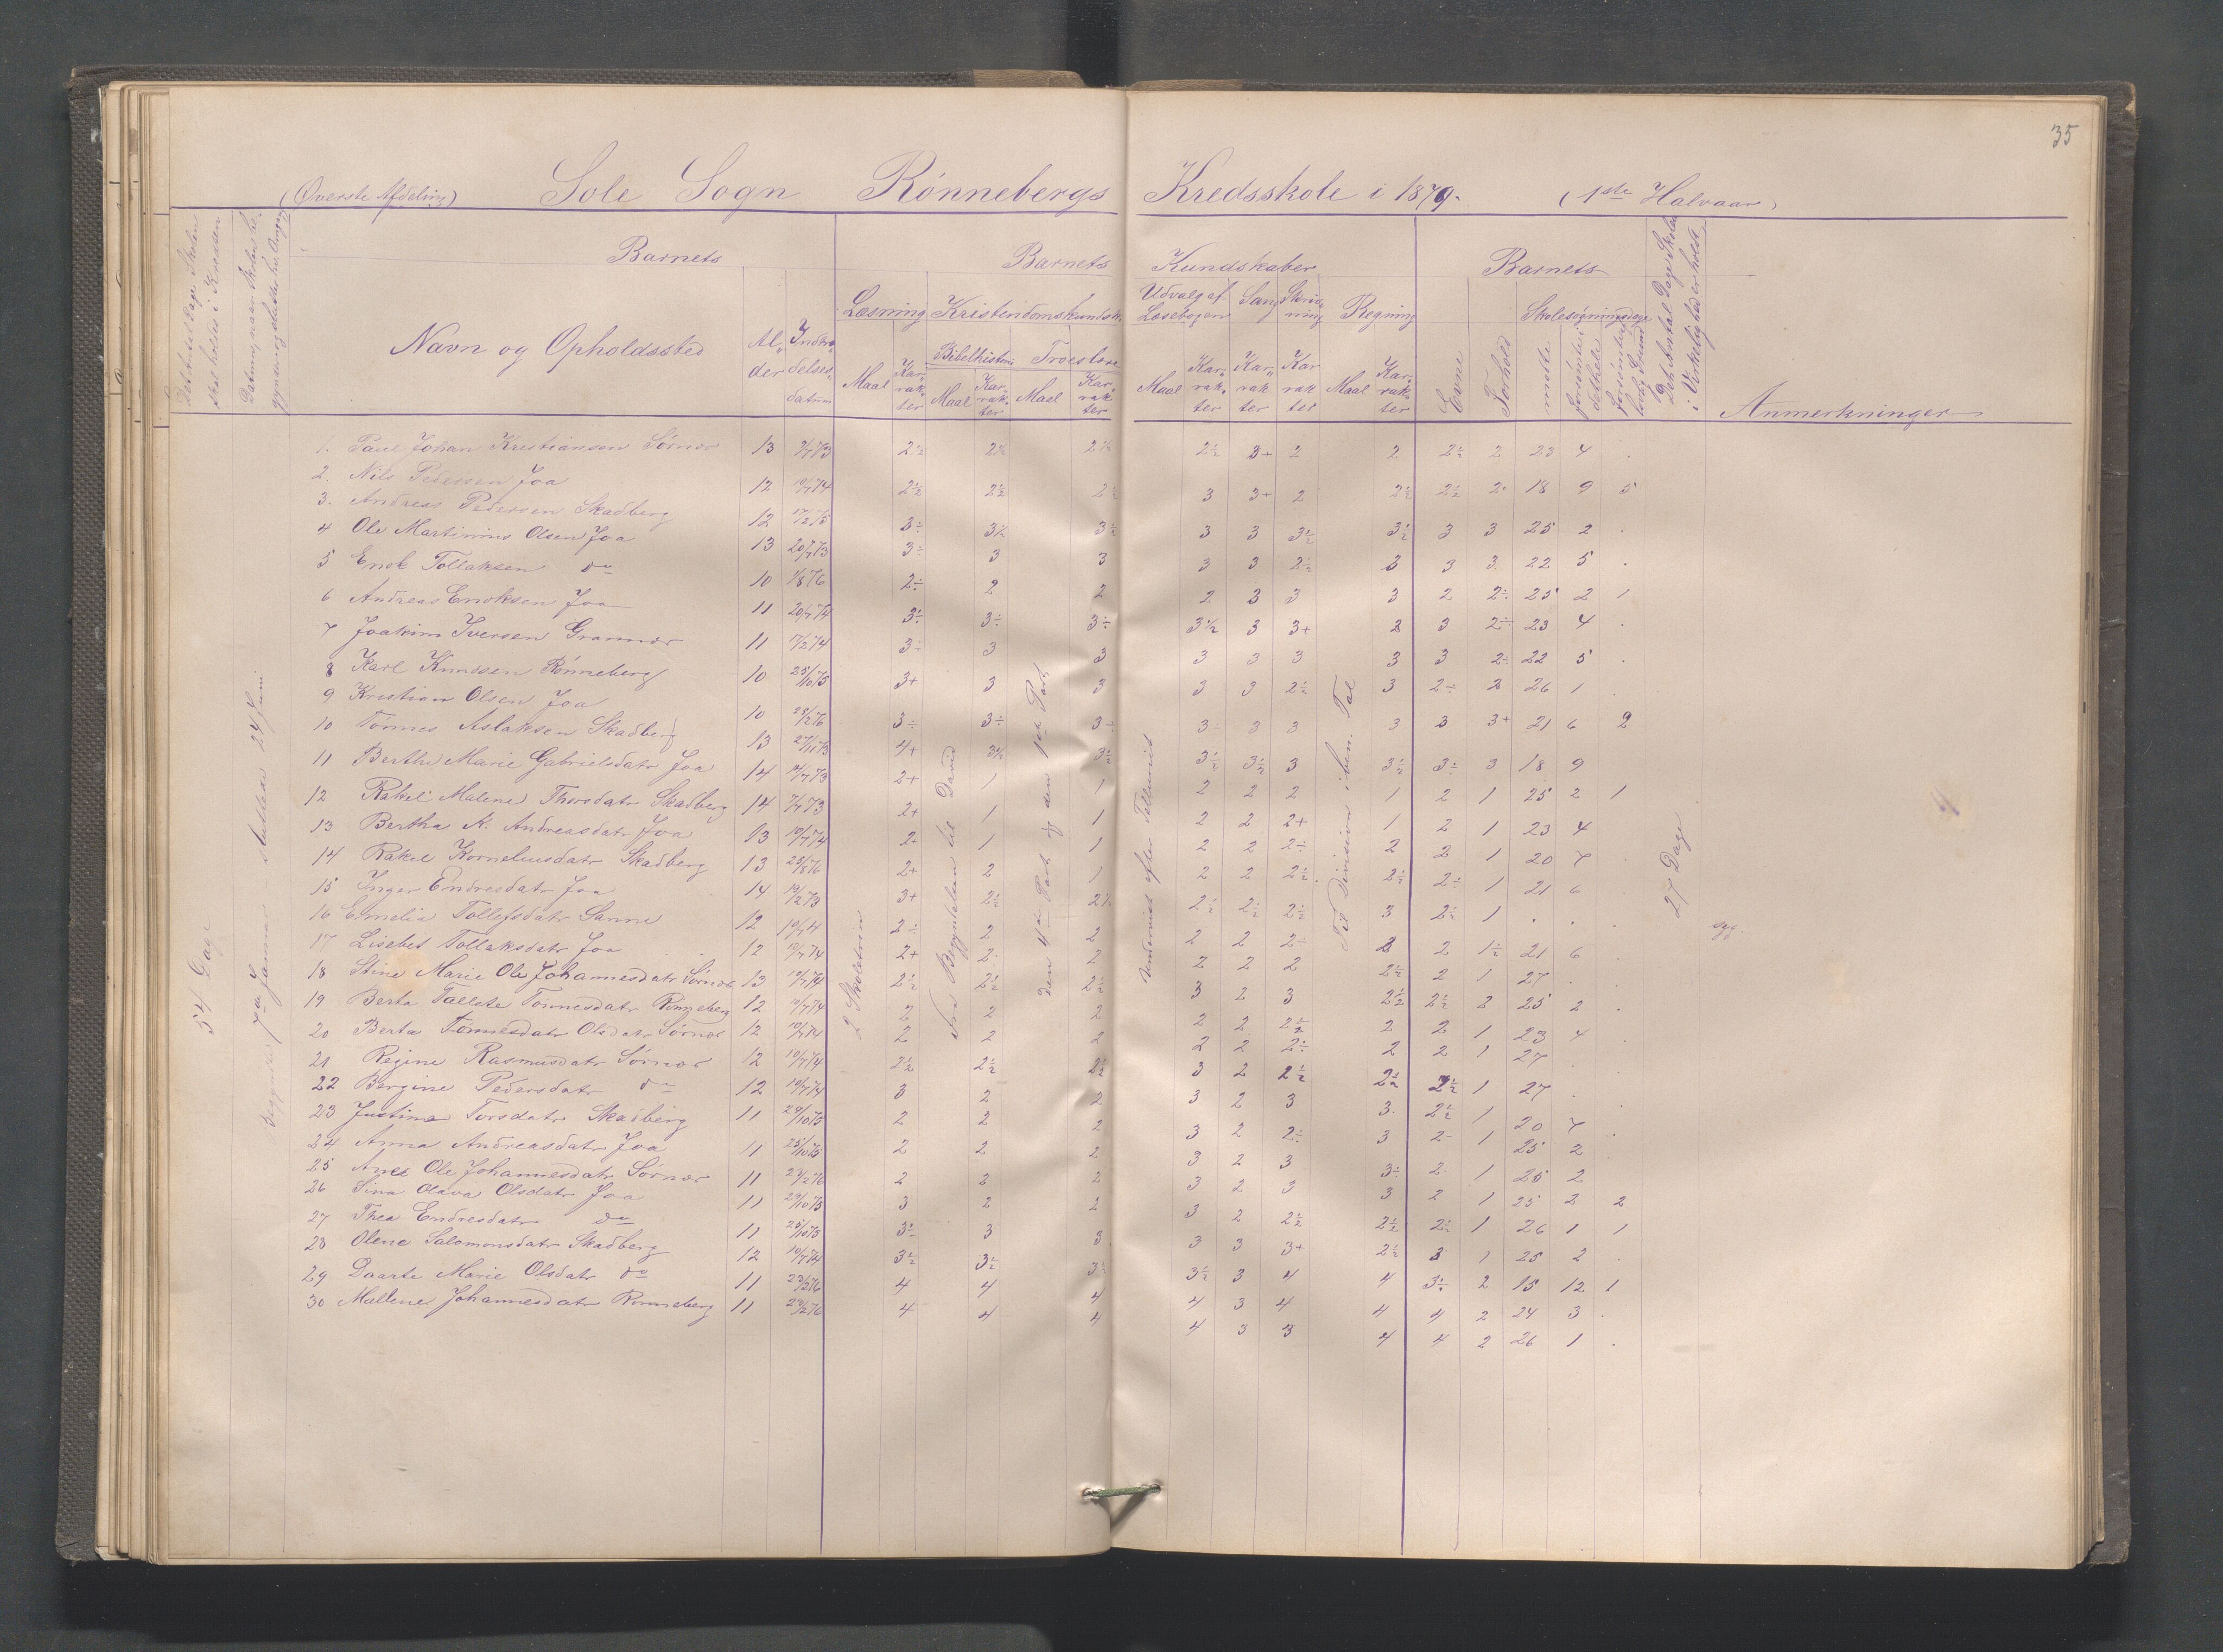 35
(Øverste Afdeling) Sole Sogn Rønnebergs Kredsskole i 1879. (1ste Halvaar)
Det Antal Dage Skolen skal holdes i Kredsen
Datum, naar Skolen begynder og slutter
Barnets Barnets Kundskaber Barnets
Det Antal Dage Skolen i Virkelighed er holdt
Navn og Opholdssted Alder Indtrædelsesdatum
Læsning Kristendomskundsk. Udvalg af Læsebogen Sang Skrivning Regning
Bibelhistorie Troeslære
Maal Karakter Maal Karakter Maal Karakter Maal Karakter Karakter Karakter Maal Karakter
Evne Forhold Skolesøgningsdage
mødte forsømte i det hele forsømte uden lovlig Grund
Anmerkninger
1. Paul Johan Kristiansen Sørnes 13 2½ 2½ 2½ 2½ 3+ 2 2 2½ 2 23 4 .
2. Nils Pedersen Joa 12 10/7 74 2½ 2½ 2½ 3 3+ 2 2½ 2½ 2 18 9 5
3. Andreas Pedersen Skadberg 12 3÷ 3½ 3÷ 3 3 3½ 3½ 3 3 25 2 .
4 Ole Martinius Olsen Joa 13 3÷ 3 3 3 3 2½ 3 3 3 22 5 .
5 Enok Tollaksen do 10 1/8 76 2÷ 2 2 2 3 3 3 2 2÷ 25 2 1
6 Andreas Enoksen Joa 11 3÷ 3÷ 3÷ 3½ 3 3+ 3 3 2÷ 23 4 .
7 Joakim Iversen Grannes 11 17/2 74 3÷ 3 3 3 3 3 3 3 2÷ 22 5 .
8 Karl Knudsen Rønneberg 10 25/10 75 3+ 3 3 3 3 2÷ 3 2÷ 2 26 1 .
9 Kristian Olsen Joa 10 28/2 76 3÷ 3÷ 3÷ 3÷ 3 3 3 3 3+ 21 6 2
10 Tønnes Aslaksen Skadberg 13 27/11 73 4+ 3½ 3½ 3½ 3½ 3 3½ 3÷ 3 18 9
11 Berthe Marie Gabrielsdatr Joa 14 2+ 1 1 2 2 2 1 2 1 25 2 1
12 Rakel Malene Thorsdatr Skadberg 14 7/7 73 2+ 1 1 2 2 2+ 1 2 1 23 4
13 Bertha A. Andreasdatr Joa 13 10/7 74 2+ 1 1 2 2 2÷ 2 2 1 20 7 .
14 Rakel Korneliusdatr Skadberg 13 25/8 76 2+ 2 1 2 2 2½ 2½ 2÷ 1 21 6 .
15 Inger Endresdatr Joa 14 3+ 2½ 2½ 2½ 2½ 2½ 3 2½ 1 . . .
16 Emelia Tollefsdatr Sanne 12 2÷ 2 2 2 2 2÷ 2 2 1½ 21 6 .
17 Lisebet Tollaksdatr Joa 12 10/7 74 2+ 2 2 2 2 2 2½ 2 1 27 .
18 Stine Marie Ole Johannesdatr Sørnes 13 10/7 74 2½ 2½ 2½ 3 2 3 2½ 2½ 2 25 2 .
19 Berta Tallete Tønnesdatr Rønneberg 12 10/7 74 2 2 2 2 2 2½ 2 2 1 23 4 .
20 Berta Tønnesdatr Olsdatr Sørnes 12 10/7 74 2 2 2 2 2 2÷ 2 2 1 27 .
21 Regine Rasmusdatr Sørnes 12 10/7 74 2½ 2½ 2½ 3 2 2½ 2½ 2½ 1 27 .
22 Bergine Pedersdatr do 12 10/7 74 3 2 2 3 2 3 3 2½ 1 20 7 .
23 Justina Torsdatr Skadberg 11 29/10 75 2 2 2 3 2 2÷ 3 2- 1 25 2
24 Anna Andreasdatr Joa 11 25/10 75 2 2 2 3 2 3 3÷ 2 1 25 2
25 Ane Ole Johannesdatr Sørnes 11 2 2 2 3 2 3 3 2 1 25 2 2
26 Sina Olava Olsdatr Joa 11 29/10 75 3 2 2 3 2 2½ 2½ 2½ 1 26 1 1
27 Thea Endresdatr do 11 25/10 75 3½ 3 3 3 3 3+ 2½ 3 1 25 2 .
28 Olene Salomonsdatr Skadberg 12 10/7 74 3½ 3½ 3½ 3½ 3 4 4 3÷ 2 15 12 1
29 Daarte Marie Olsdatr do 11 4 4 4 4 3 4 4 4 2 24 3 .
30 Mallene Johannesdatr Rønneberg 11 4 4 4 4 3 3 4 4 2 26 1 .
54 Dage
24 Juni
2 Skoletrin
Fra Begyndelsen til David
den 4de Part og den 1ste Part
Undervist efter
Til Division i ben. Tal
27 Dage